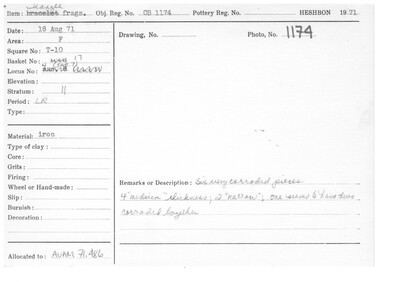 Item: bracelet frags. Obj. Reg. No. OB 1174 Pottery Reg. No. HESHBON 1971
Date: 18 Aug 71
Area: F
Square No: T-10
Basket No: 17
Locus No:
Elevation:
Stratum: 11
Period: LR
Type:
Material: iron
Type of clay:
Core:
Grits:
Firing:
Wheel or Hand-made:
Slip:
Burnish:
Decoration:
Allocated to: AUAM 71.486
Drawing, No.
Photo, No. 1174
Remarks or Description: Six very corroded pieces
4 "medium" thickness; 2 "narrow"; one seems to have two
corroded together